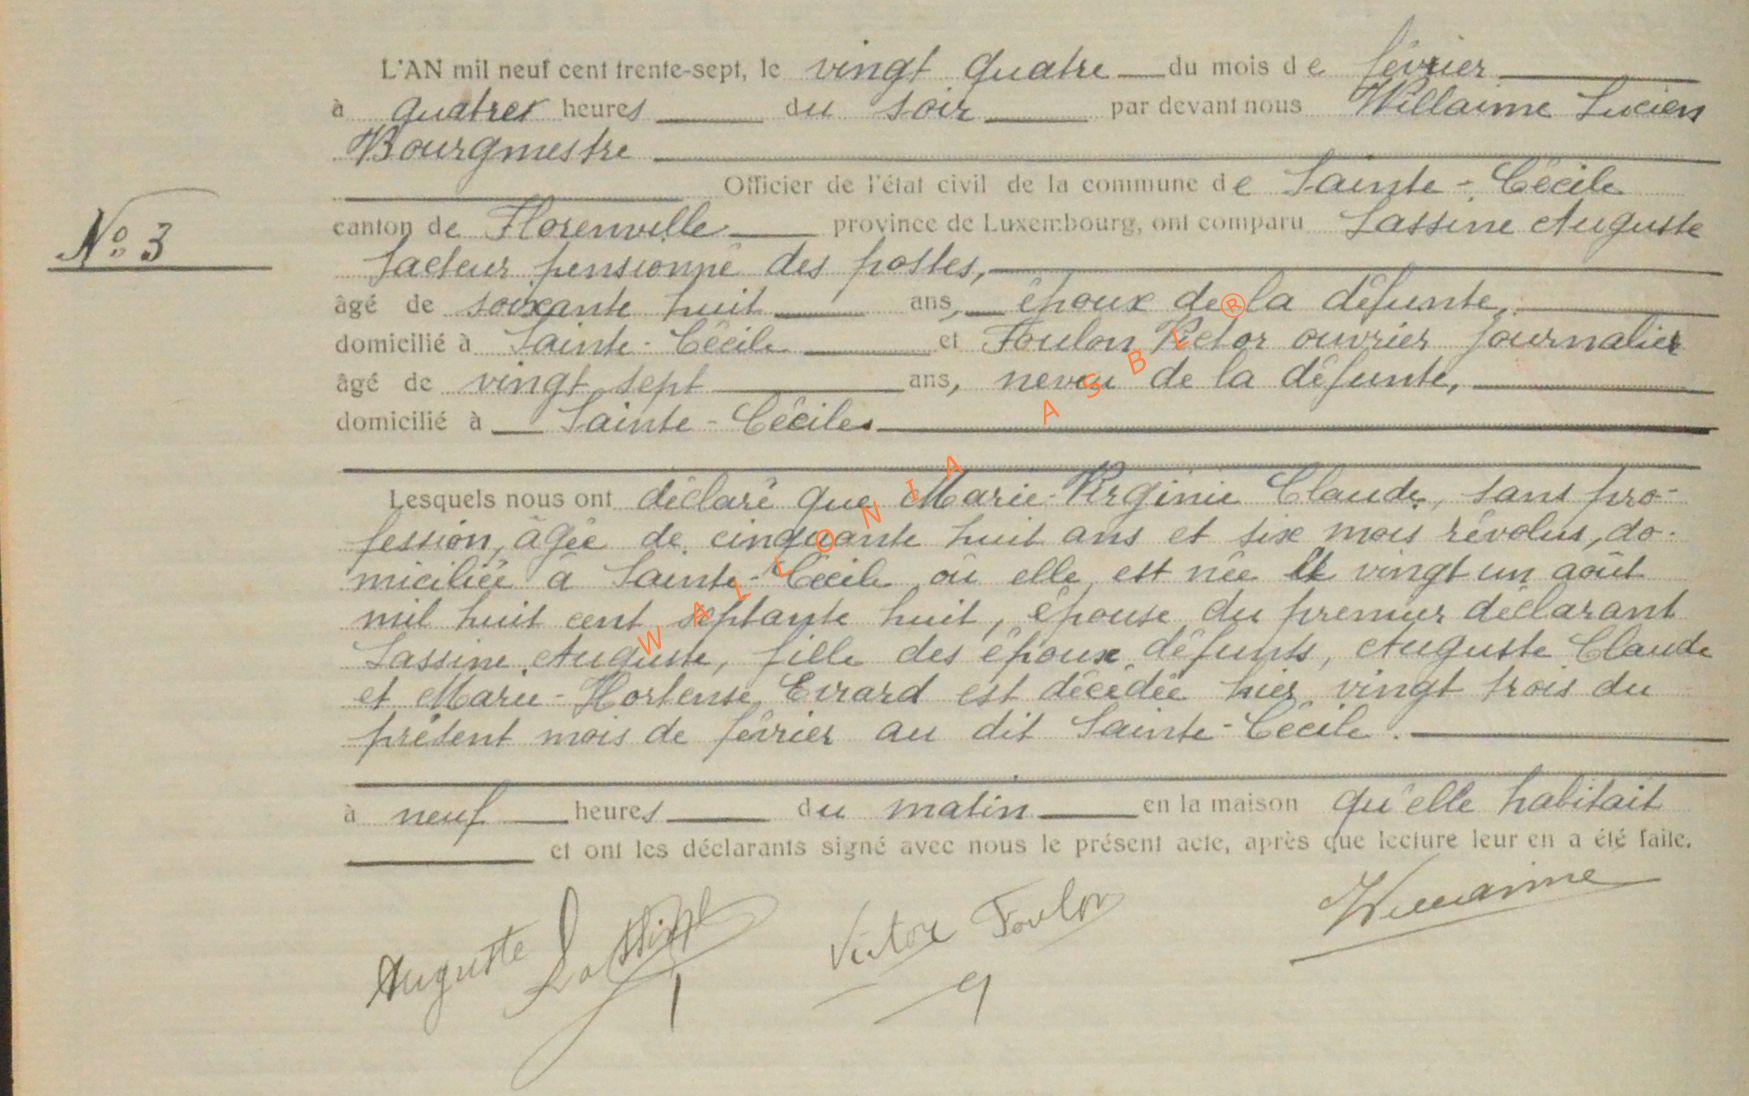 L'AN mil neuf cent trente-sept, le vingt quatre du mois de février
à quatre heures du soir par devant nous Willaime Lucien
Bourgmestre
Officier de l'état civil de la commune de Sainte-Cécile
N° 3
canton de Florenville province de Luxembourg, ont comparu Lassine Auguste
facteur pensionné des postes,
âgé de soixante huit ans, époux de la défunte,
domicilié à Sainte-Cécile et Foulon Victor ouvrier journalier
âgé de vingt sept ans, neveu de la défunte,
domicilié à Sainte-Cécile.
Lesquels nous ont déclaré que Marie-Virginie Claude, sans pro-
fession, âgée de cinquante huit ans et six mois révolus, do-
miciliée a Sainte-Cécile où elle est née le vingt un août
mil huit cent septante huit, épouse du premier déclarant
Lassine Auguste, fille des époux défunts, Auguste Claude
et Marie-Hortense Evrard est décédée hier vingt trois du
présent mois de février au dit Sainte-Cécile.
à neuf heures du matin en la maison qu'elle habitait
et ont les déclarants signé avec nous le présent acte, après que lecture leur en a été faite.
Auguste Lassine Victor Foulon Willaime
WALLONIA ASBL ®